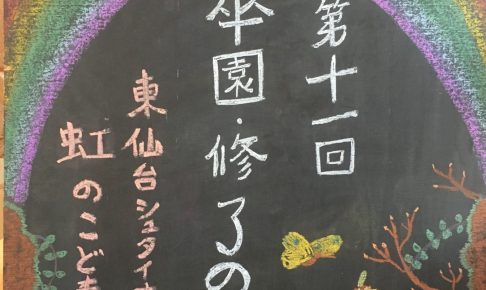 第十一回
卒園・修了の
東仙台シュタイナ
虹のこど